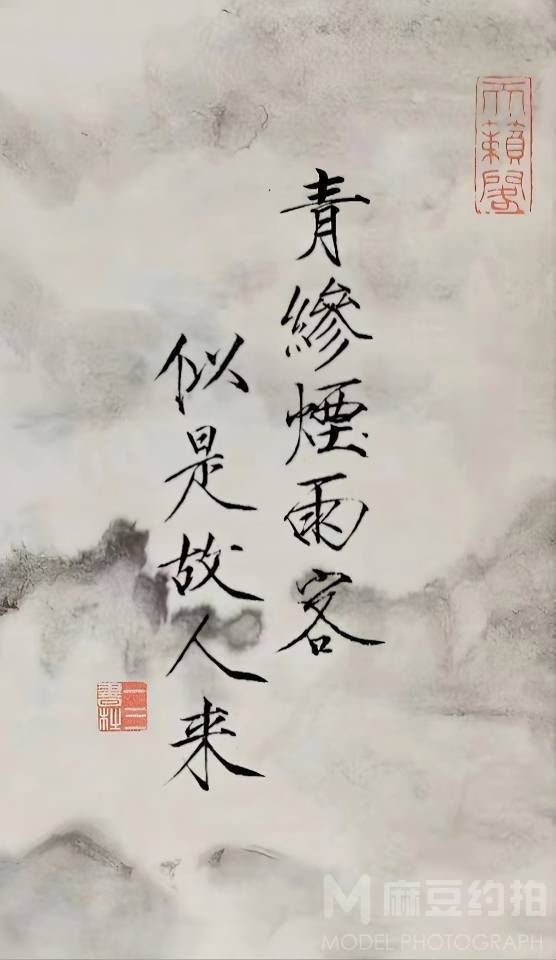 青縿煙雨客
似是故人来
天籟閣
一二三書社
M 麻豆约拍
MODEL PHOTOGRAPH